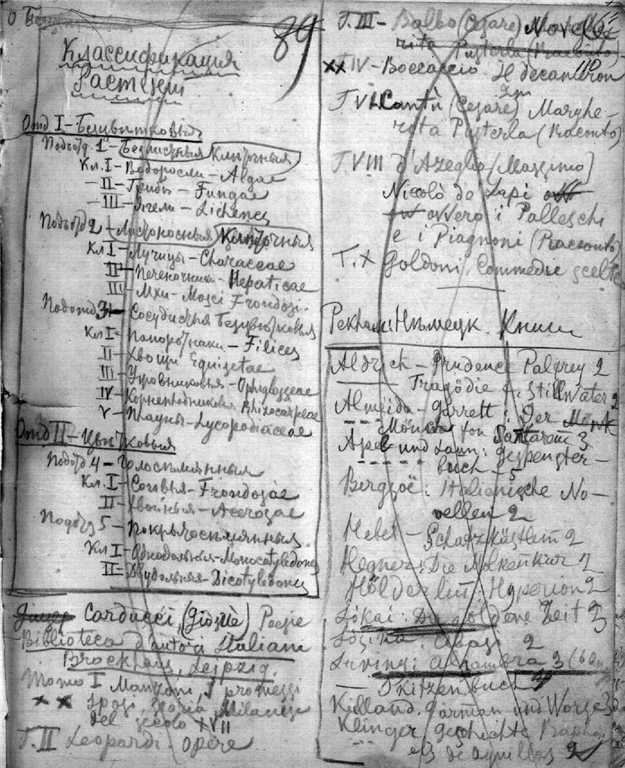 89
Классификация
Растеній
Отд I - Безцвѣтковыя
Подотд. 1 - Безлистныя Клѣточныя
Кл. I - Водоросли - Algae
II - Грибы - Fungae
III - Ягели - Lichenes
Подотд 2 - Листоносныя Клѣточныя
Кл I - Лучицы - Characeae
II - Печеночник - Hepaticae
III - Мхи - Mosci Frondosi
Подотд 3 - Сосудистыя Безцвѣтковыя
Кл I - Папоротники - Filices
II - Хвощи Equizetae
III - Ужовниковыя - Ophiglosseae
IV - Корнеплодниковыя Rhizocarpeae
V - Плауны - Lycopodiaceae
Отд II - Цвѣтковыя
Подотд 4 - Голосѣмянныя
Кл. I - Frondosae
II - Хвойныя - Acerosae
Подотд 5 - Покрытосѣмянныя
Кл I - Однодольныя - Monocotyledones
II - Двудольныя - Dicotyledones
Carducci (Giosuè) Poesie
Biblioteca d'autori Italiani
Brockhaus, Leipzig.
Tomo I Manzoni, I promessi
xx Sposi, storia Milanese
del secolo XVII
T. II Leopardi - opere
T. III - Balbo (Cesare) Novelle
rita Pusterla (Racconto)
xx T IV - Boccaccio Il decameron
T VI Cantù (Cesare) Marghe-
rita Pusterla (Racconto)
T. VIII d'Azeglio (Massimo)
Nicolò de Lapi
ovvero i Palleschi
e i Piagnoni (Racconto)
T. X Goldoni, Commedie scelte
Реклам Нѣмецк. Книги
Aldrich - Prudence Palfrey 2
Tragödie f. Stillwater 2
Almeida - Garrett: Der Mönk
Mönch fon Santarem 3
Apel und Laun: Gespenster-
buch - 5
Bergsoë: Italienische No-
vellen 2
Hebel - Schatzkästlein 2
Hegner: Die Molkenkur 2
Hölderlin: Hyperion 2
Jókai: Die goldene Zeit 3
Jósika: Abafi 2
Irving: Alhambra 3
Skizzenbuch 4
Kielland: Garman und Worse 3
Klinger Geschichte Raphaels
de Aquillas 2